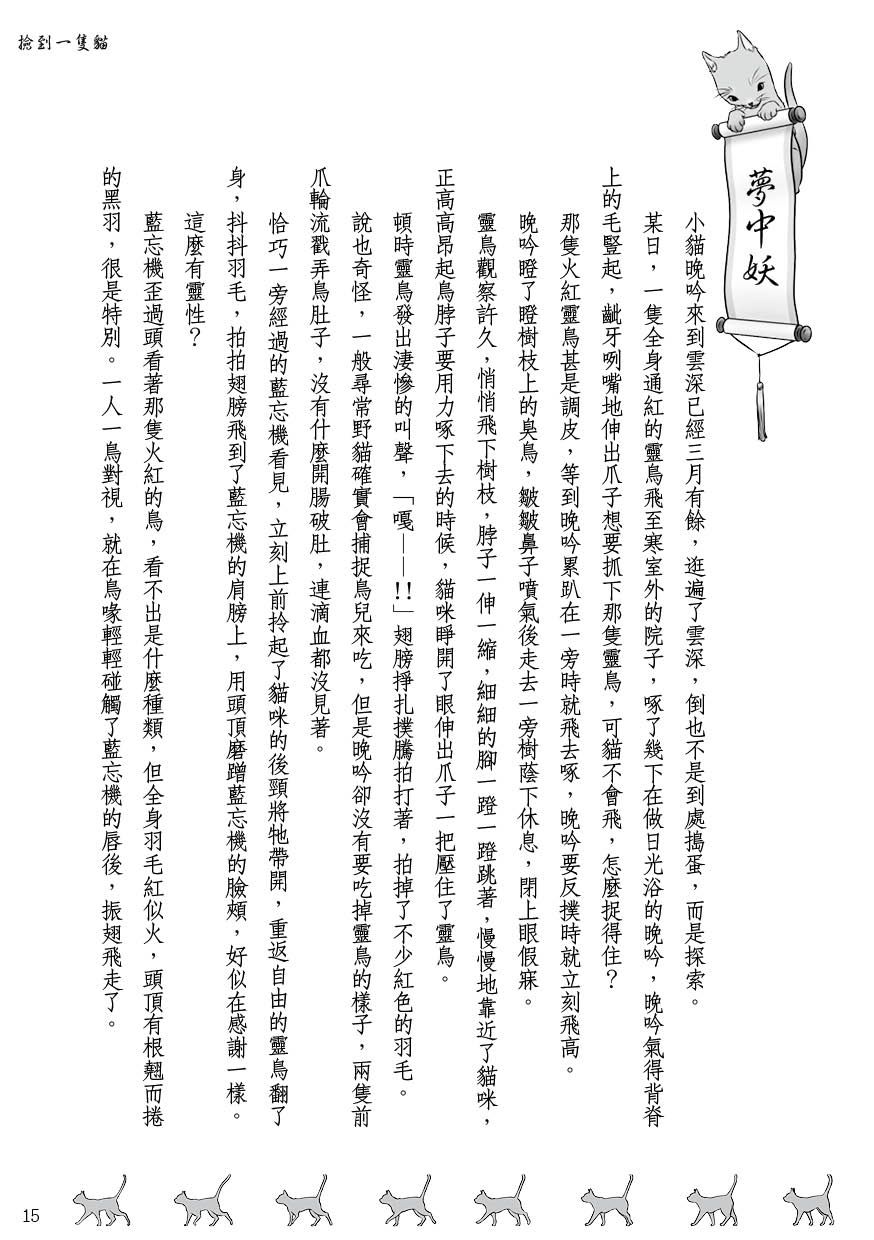 撿到一隻貓
夢中妖
小貓晚吟來到雲深已經三月有餘，逛遍了雲深，倒也不是到處搗蛋，而是探索。
某日，一隻全身通紅的靈鳥飛至寒室外的院子，啄了幾下在做日光浴的晚吟，晚吟氣得背脊
上的毛豎起，齜牙咧嘴地伸出爪子想要抓下那隻靈鳥，可貓不會飛，怎麼捉得住？
那隻火紅靈鳥甚是調皮，等到晚吟累趴在一旁時就飛去啄，晚吟要反撲時就立刻飛高。
晚吟瞪了瞪樹枝上的臭鳥，皺皺鼻子噴氣後走去一旁樹蔭下休息，閉上眼假寐。
靈鳥觀察許久，悄悄飛下樹枝，脖子一伸一縮，細細的腳一蹬一蹬跳著，慢慢地靠近了貓咪，
正高高昂起鳥脖子要用力啄下去的時候，貓咪睜開了眼伸出爪子一把壓住了靈鳥。
頓時靈鳥發出淒慘的叫聲，「嘎——!!」翅膀掙扎撲騰拍打著，拍掉了不少紅色的羽毛。
說也奇怪，一般尋常野貓確實會捕捉鳥兒來吃，但是晚吟卻沒有要吃掉靈鳥的樣子，兩隻前
爪輪流戳弄鳥肚子，沒有什麼開腸破肚，連滴血都沒見著。
恰巧一旁經過的藍忘機看見，立刻上前拎起了貓咪的後頸將牠帶開，重返自由的靈鳥翻了
身，抖抖羽毛，拍拍翅膀飛到了藍忘機的肩膀上，用頭頂磨蹭藍忘機的臉頰，好似在感謝一樣。
這麼有靈性？
藍忘機歪過頭看著那隻火紅的鳥，看不出是什麼種類，但全身羽毛紅似火，頭頂有根翹而捲
的黑羽，很是特別。一人一鳥對視，就在鳥喙輕輕碰觸了藍忘機的唇後，振翅飛走了。
15